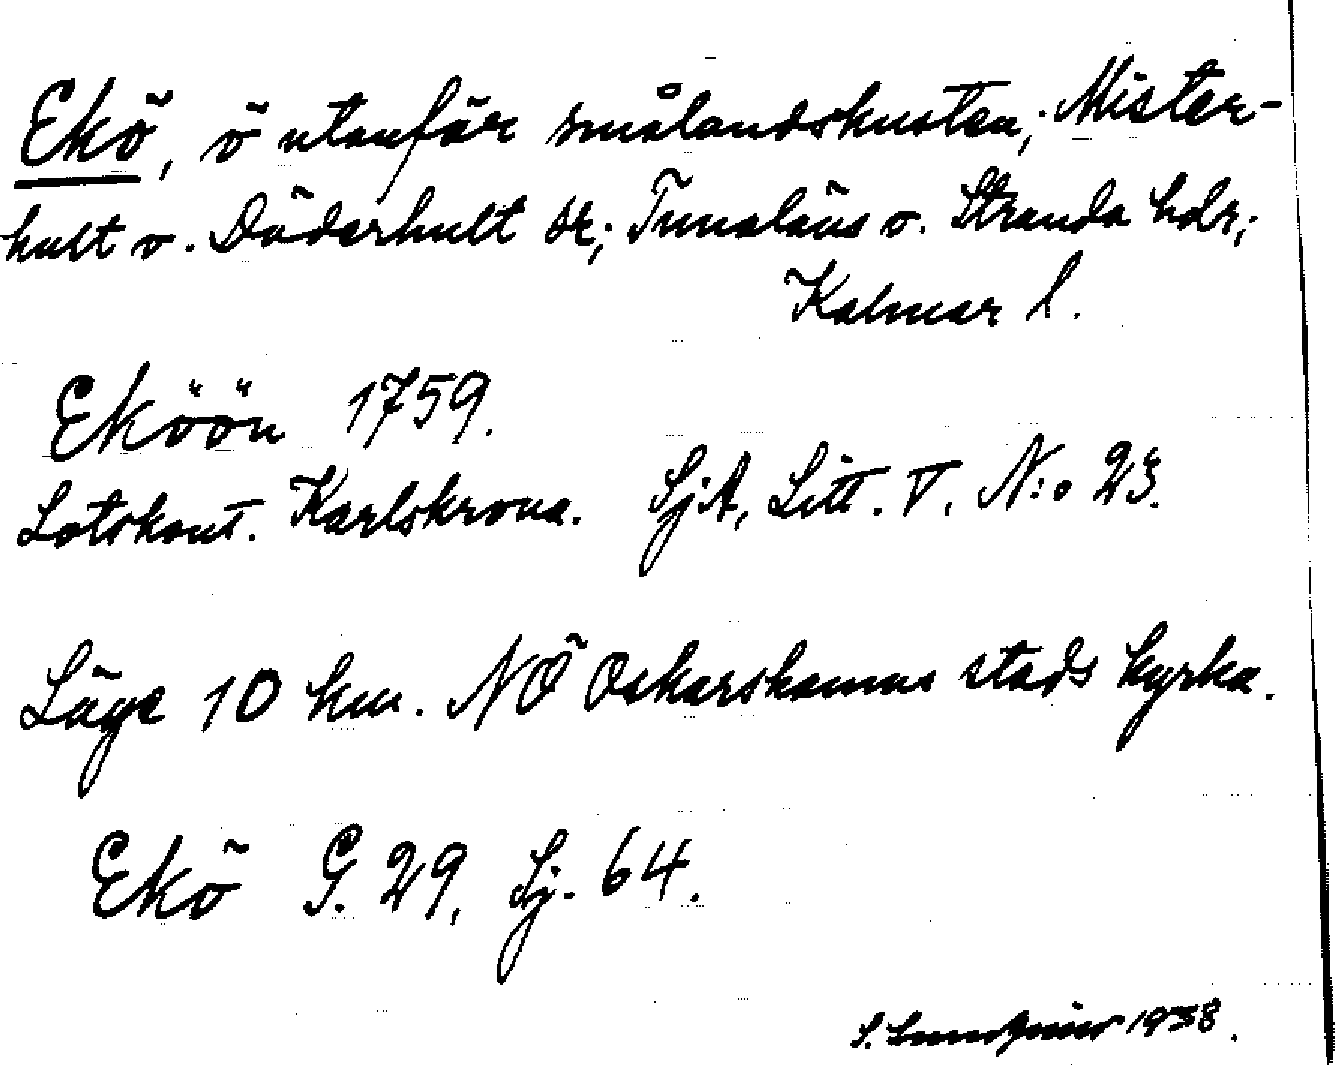 Ekö, ö utanför smålandskusten; Mister-
hult o. Döderhult sr; Tunaläns o. Stranda hdr;
Kalmar l.
Eköön 1759.
Lotskont. Karlskrona. SjA, Litt. V. N:o 23.
Läge 10 km. NÖ Oskarshamns stads kyrka.
Ekö G. 29, Sj. 64.
S. Lundqvist 1938.